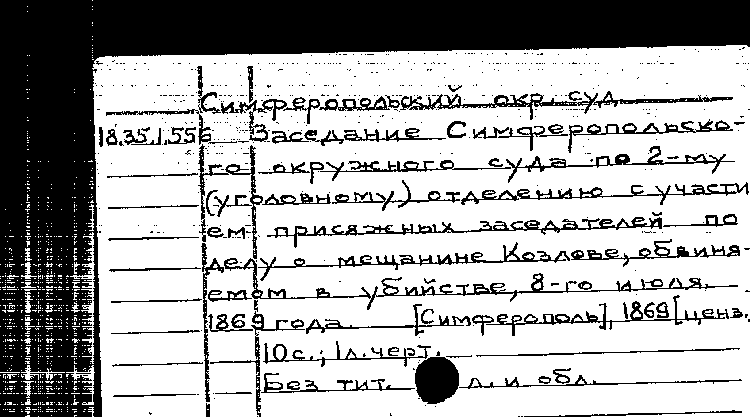 Симферопольский окр. суд
18.35.1.556 Заседание Симферопольско-
го окружного суда по 2-му
(уголовному) отделению с участи
ем присяжных заседателей по
делу о мещанине Козлове, обвиня-
емом в убийстве, 8-го июля
1869 года. [Симферополь], 1869 [ценз.
10с.; 1л.черт.
Без тит. л. и обл.